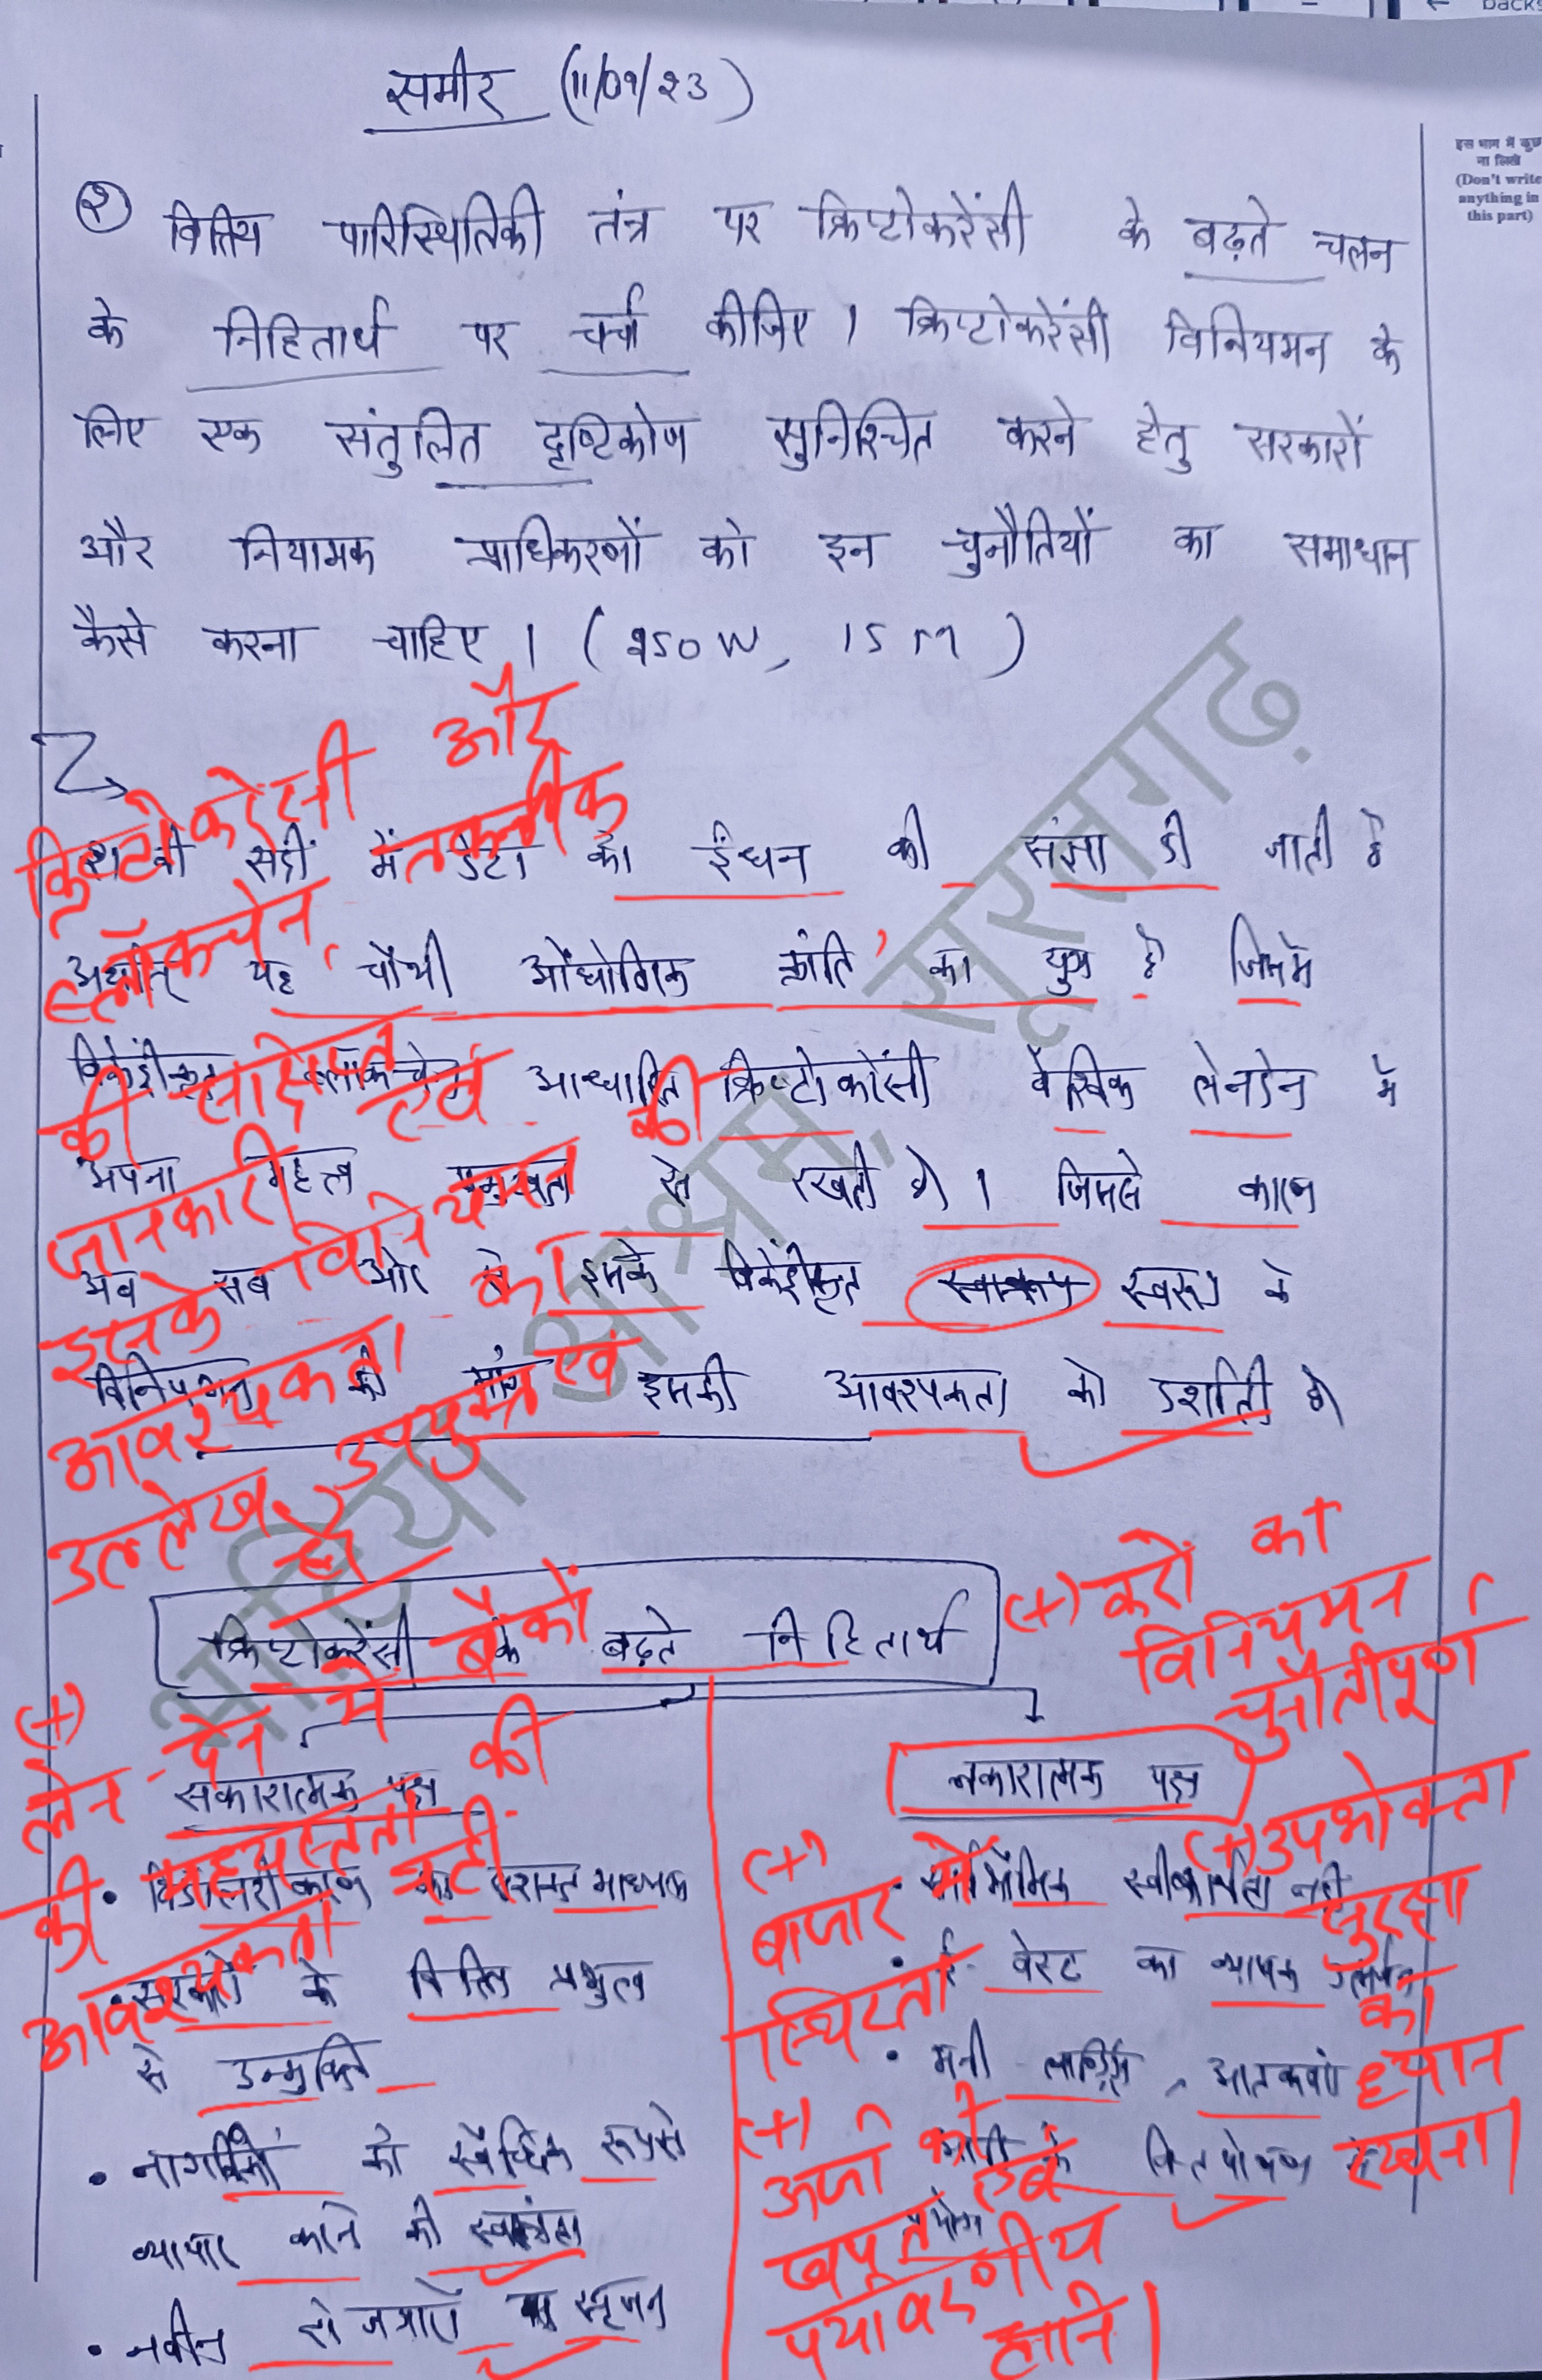 समीर (11/09/23)
इस भाग में कुछ
ना लिखें
(Don't write
anything in
this part)
② वित्तिय पारिस्थितिकी तंत्र पर क्रिप्टोकरेंसी के बढ़ते चलन
के निहितार्थ पर चर्चा कीजिए । क्रिप्टोकरेंसी विनियमन के
लिए एक संतुलित दृष्टिकोण सुनिश्चित करने हेतु सरकारों
और नियामक प्राधिकरणों को इन चुनौतियों का समाधान
कैसे करना चाहिए । (250 W, 15 M)
क्रिप्टोकरेंसी और
तकनीक
ब्लॉकचेन
की संक्षिप्त
एवं की
जानकारी
इनके विनियमन
का
आवश्यकता
उल्लेख उपयुक्त एवं
है
सदी में डेटा को ईंधन की संज्ञा दी जाती है
अर्थात् यह 'चौथी औद्योगिक क्रांति' का युग है जिसमें
विकेंद्रीकृत ब्लॉकचेन आधारित क्रिप्टोकरेंसी वैश्विक लेनदेन में
अपना महत्व प्रमुखता से रखती है। जिसके कारण
अब सब ओर से इसके विकेंद्रीकृत स्वरूप के
विनियमन की मांग इसकी आवश्यकता को दर्शाती है।
क्रिप्टोकरेंसी के बढ़ते निहितार्थ
(+) करों का
विनियमन
चुनौतीपूर्ण
(+)
लेन-देन में बैंकों
की
मध्यस्तता
की घटी
आवश्यकता
सकारात्मक पक्ष
• विडॉलरीकरण का सशक्त माध्यम
• सरकारों के वित्तिय प्रभुत्व
से उन्मुक्ति
• नागरिकों को स्वैच्छिक रूप से
व्यापार करने की स्वतंत्रता
• नवीन रोजगारों का सृजन
नकारात्मक पक्ष
• स्वीकार्यता नहीं
• ई-वेस्ट का व्यापक उत्सर्जन
• मनी लॉन्ड्रिंग, आतंकवाद
के वित्तपोषण में
प्रयोग
(+) उपभोक्ता
सुरक्षा
को
ध्यान
रखना।
(+)
बाजार में
स्थिरता
(+)
ऊर्जा की
खपत एवं
पर्यावरणीय
हानि।
भाटिया आश्रम, सूरतगढ़